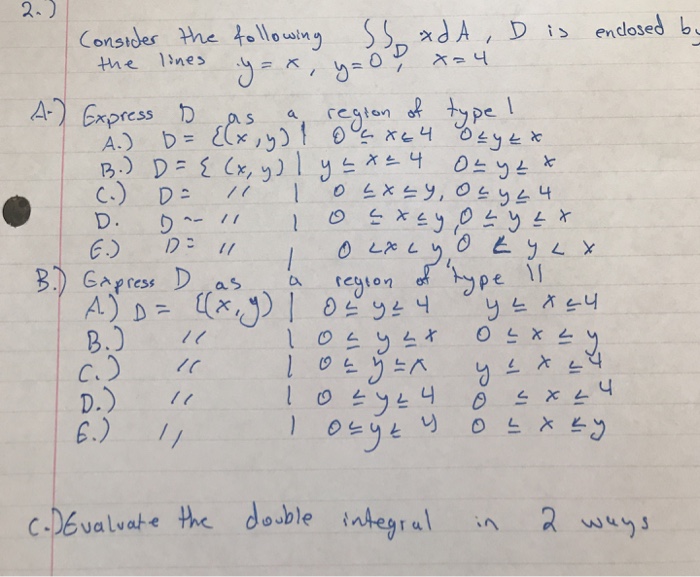 2.)
Consider the following ∫∫_D x dA, D is enclosed by
the lines y = x, y = 0, x = 4
A.) Express D as a region of type I
A.) D = {(x,y) | 0 ≤ x ≤ 4 0 ≤ y ≤ x
B.) D = { (x,y) | y ≤ x ≤ 4 0 ≤ y ≤ x
C.) D = " | 0 ≤ x ≤ y, 0 ≤ y ≤ 4
D. D = " | 0 ≤ x ≤ y, 0 ≤ y ≤ x
E.) D = " | 0 < x < y, 0 ≤ y < x
B.) Express D as a region of type II
A.) D = {(x,y) | 0 ≤ y ≤ 4 y ≤ x ≤ 4
B.) " | 0 ≤ y ≤ x 0 ≤ x ≤ y
C.) " | 0 ≤ y ≤ x y ≤ x ≤ 4
D.) " | 0 ≤ y ≤ 4 0 ≤ x ≤ 4
E.) " | 0 ≤ y ≤ 4 0 ≤ x ≤ y
C.) Evaluate the double integral in 2 ways